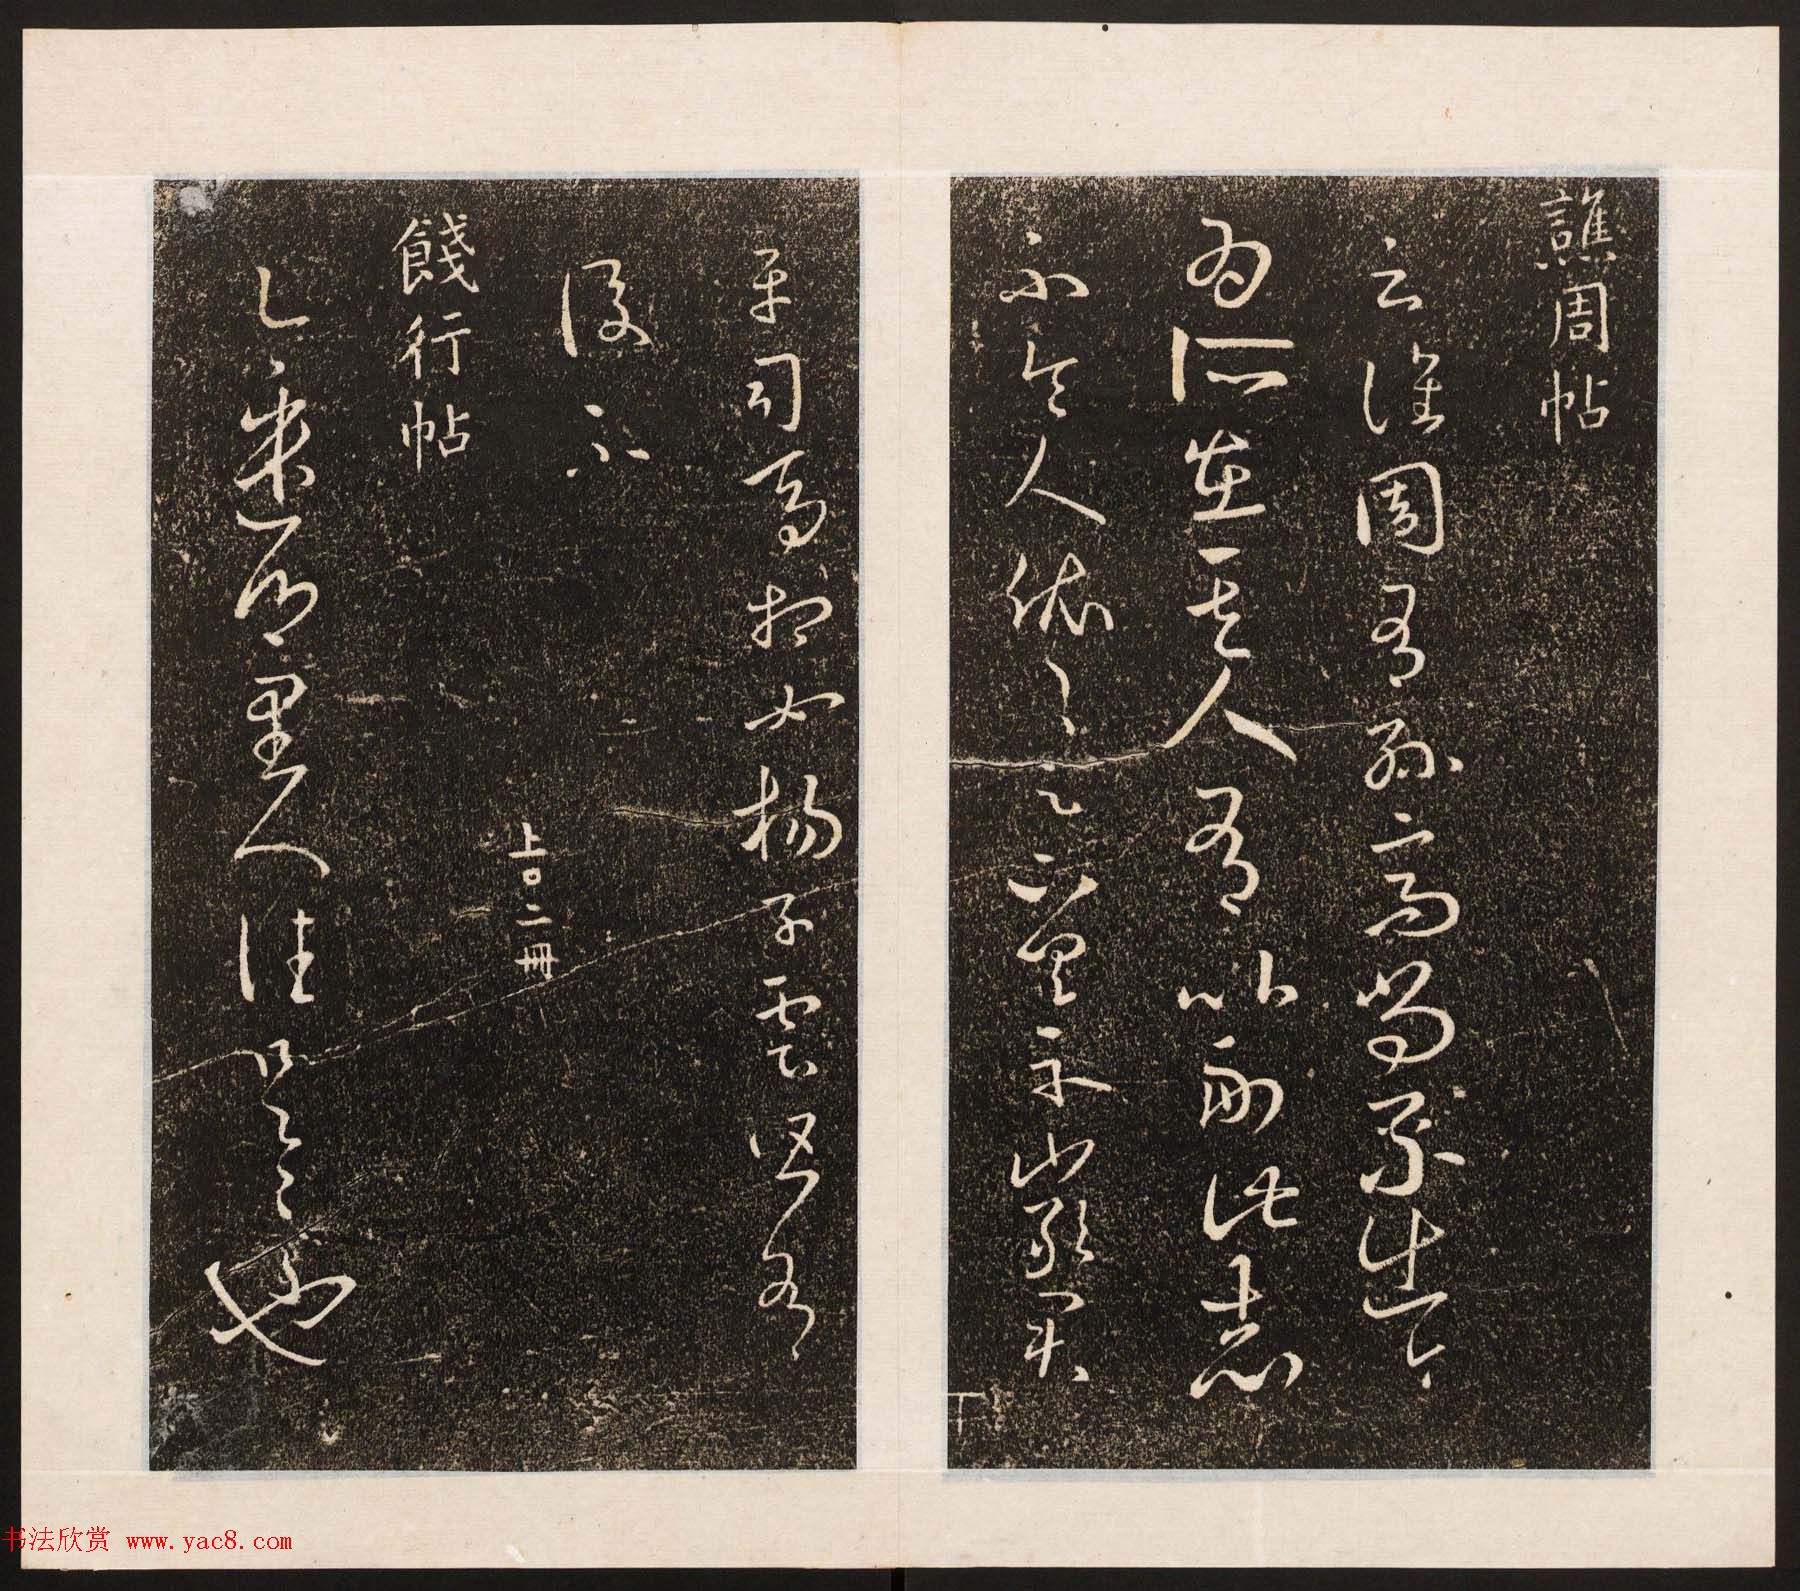 譙周帖
云譙周有孫高尚不出今
為所在其人有以副此志
不令人依依足下具示嚴君
平司馬相如楊子雲皆有
後不
上〇二冊
餞行帖
里人往
书法欣赏 www.yac8.com